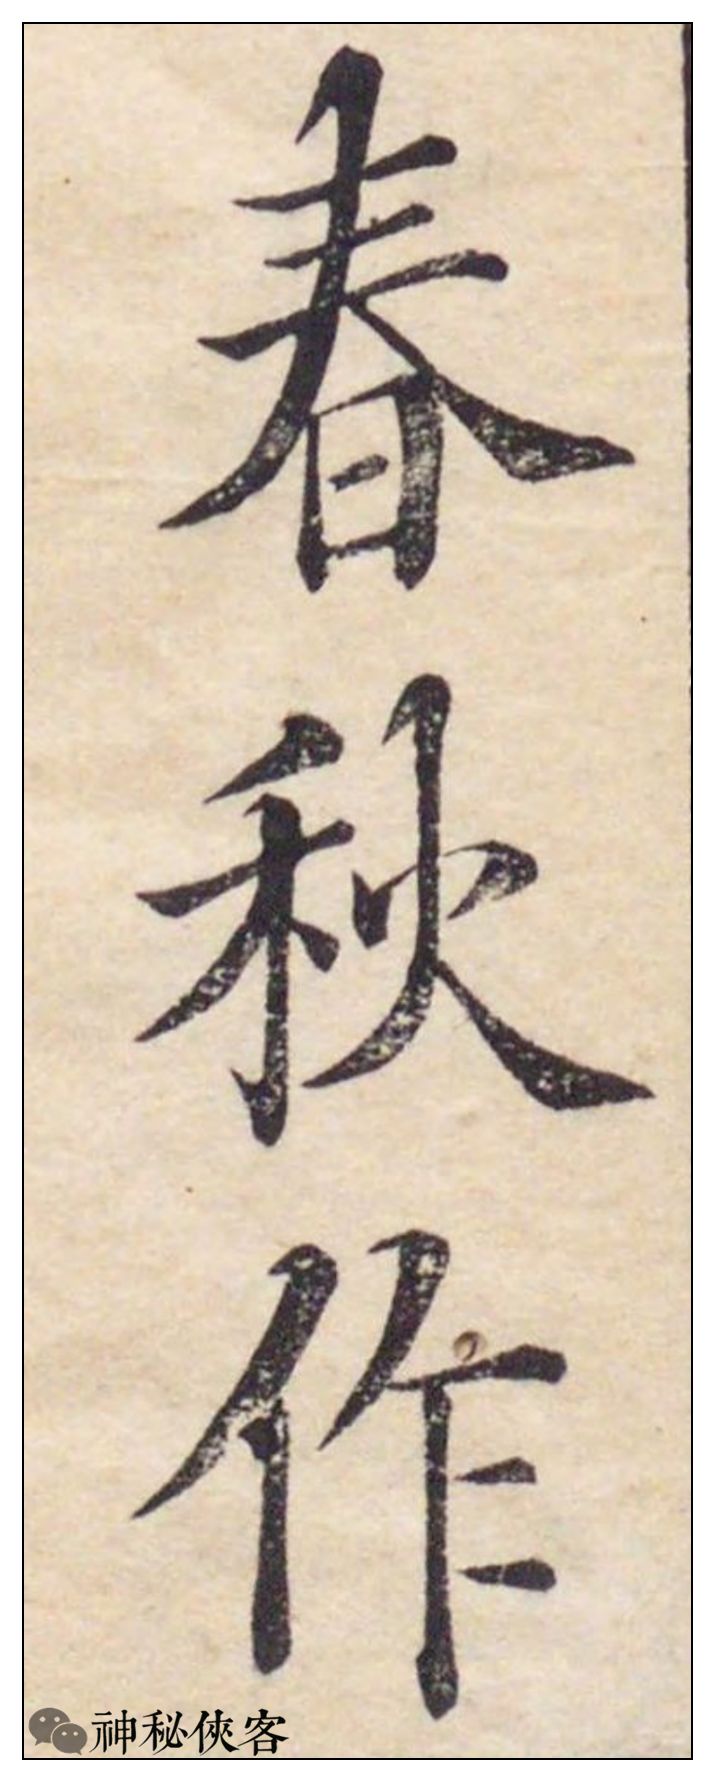 春秋作
神秘俠客